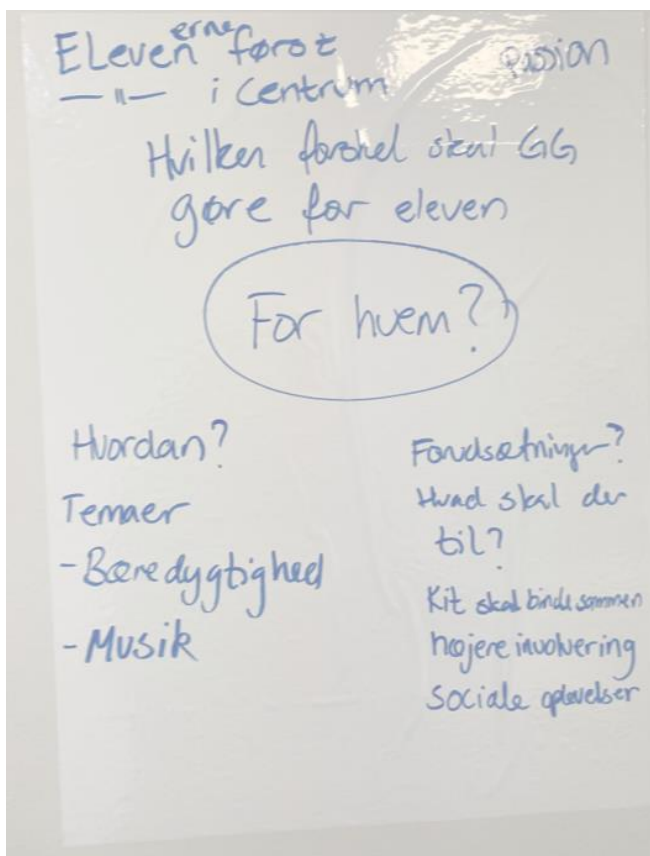 Eleven erne først
—"— i centrum
passion
Hvilken forskel skal GG
gøre for eleven
For hvem?
Hvordan?
Temaer
- Bæredygtighed
- Musik
Forudsætninger?
Hvad skal der
til?
Kit skal binde sammen
højere involvering
sociale oplevelser